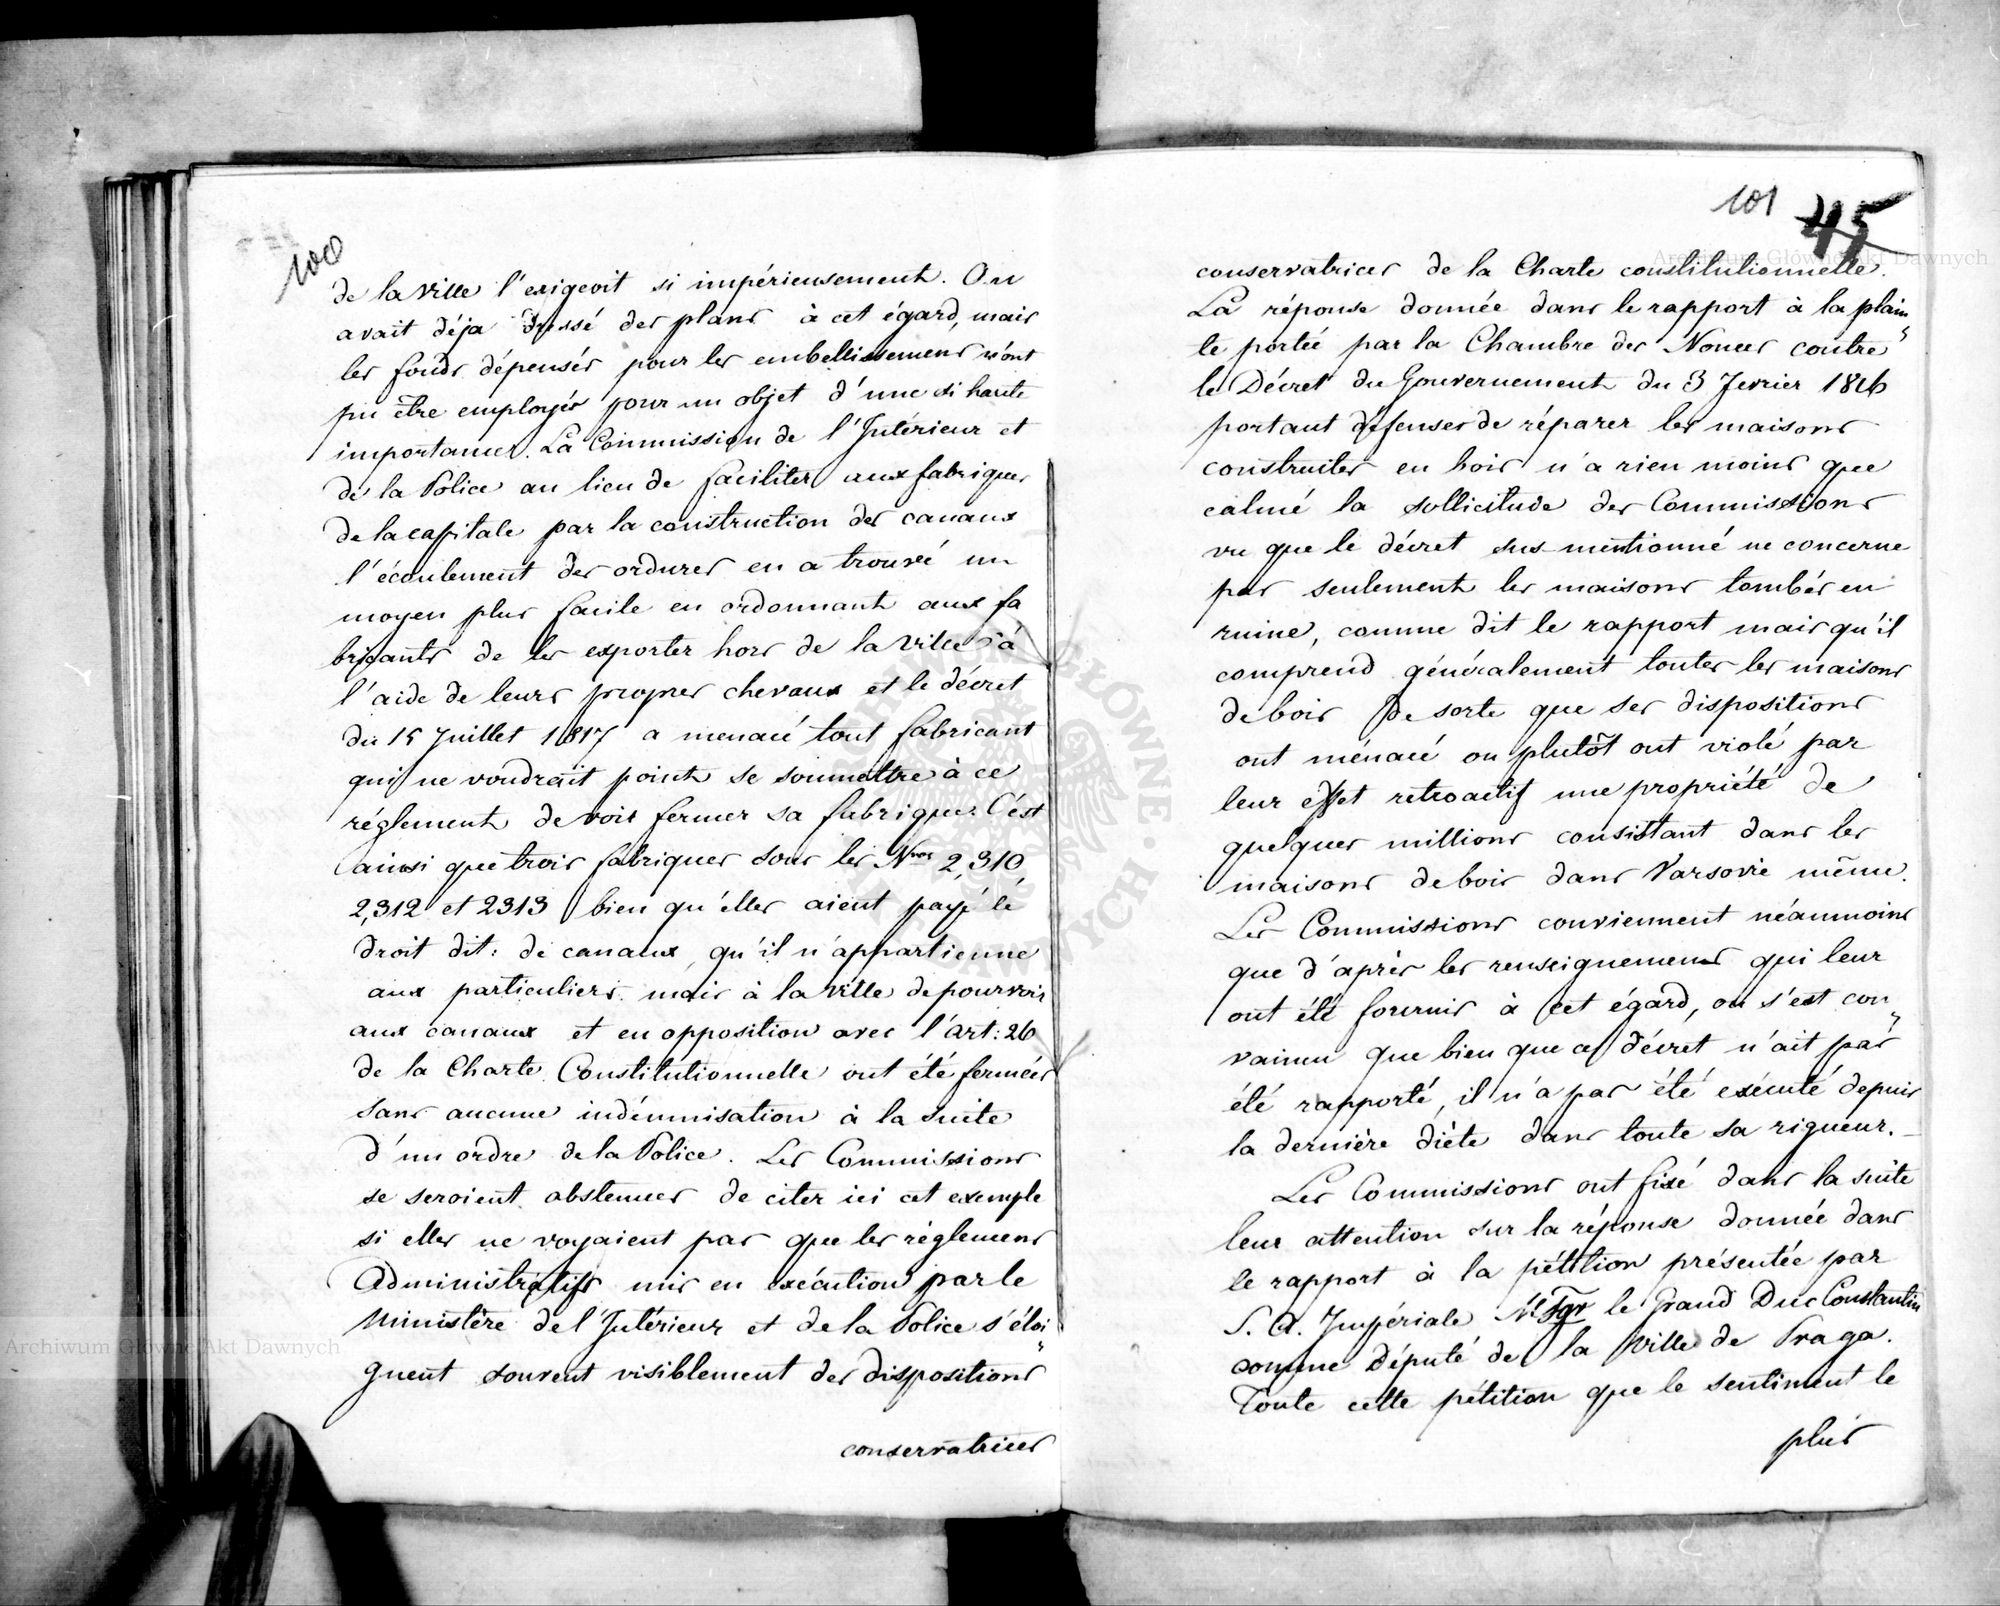 100
de la ville l'exigeoit si impérieusement. On
avait déja dressé des plans à cet égard, mais
les fonds dépensés pour les embellissemens n'ont
pu être employés pour un objet d'une si haute
importance. La Commission de l'Intérieur et
de la Police au lieu de faciliter aux fabriques
de la capitale par la construction des canaux
l'écoulement des ordures en a trouvé un
moyen plus facile en ordonnant aux fa
bricants de les exporter hors de la ville à
l'aide de leurs propres chevaux et le décret
du 15 Juillet 1817 a menacé tout fabricant
qui ne voudrait point se soumettre à ce
réglement de voir fermer sa fabrique. C'est
ainsi que trois fabriques sous les Nros 2,310,
2,312 et 2313 bien qu'elles aient payé le
droit dit: de canaux, qu'il n'appartienne
aux particuliers mais à la ville de pourvoir
aux canaux et en opposition avec l'art: 26
de la Charte Constitutionnelle ont été fermées
sans aucune indémnisation à la suite
d'un ordre de la Police. Les Commissions
se seroient abstenues de citer ici cet exemple
si elles ne voyaient pas que les réglemens
Administratifs mis en exécution par le
Ministère de l'Intérieur et de la Police s'éloi„
gnent souvent visiblement des dispositions
conservatrices
101 45
conservatrices de la Charte constitutionnelle.
La réponse donnée dans le rapport à la plain„
te portée par la Chambre des Nonces contre
le Décret du Gouvernement du 3 Fevrier 1816
portant défenses de réparer les maisons
construites en bois n'a rien moins que
calmé la sollicitude des Commissions
vu que le décret sus-mentionné ne concerne
pas seulement les maisons tombés en
ruine, comme dit le rapport mais qu'il
comprend généralement toutes les maisons
de bois de sorte que ses dispositions
ont ménacé ou plutôt ont violé par
leur effet retroactif une propriété de
quelques millions consistant dans les
maisons de bois dans Varsovie même.
Les Commissions conviennent néanmoins
que d'après les renseignemens qui leur
ont été fournis à cet égard, on s'est con„
vaincu que bien que ce décret n'ait pas
été rapporté, il n'a pas été exécuté depuis
la dernière diéte dans toute sa rigueur.
Les Commissions ont fixé dans la suite
leur attention sur la réponse donnée dans
le rapport à la pétition présentée par
S. A. Impériale le Grand Duc Constantin
comme Député de la ville de Praga.
Toute cette pétition que le sentiment le
plus
Archiwum Główne Akt Dawnych
Archiwum Główne Akt Dawnych